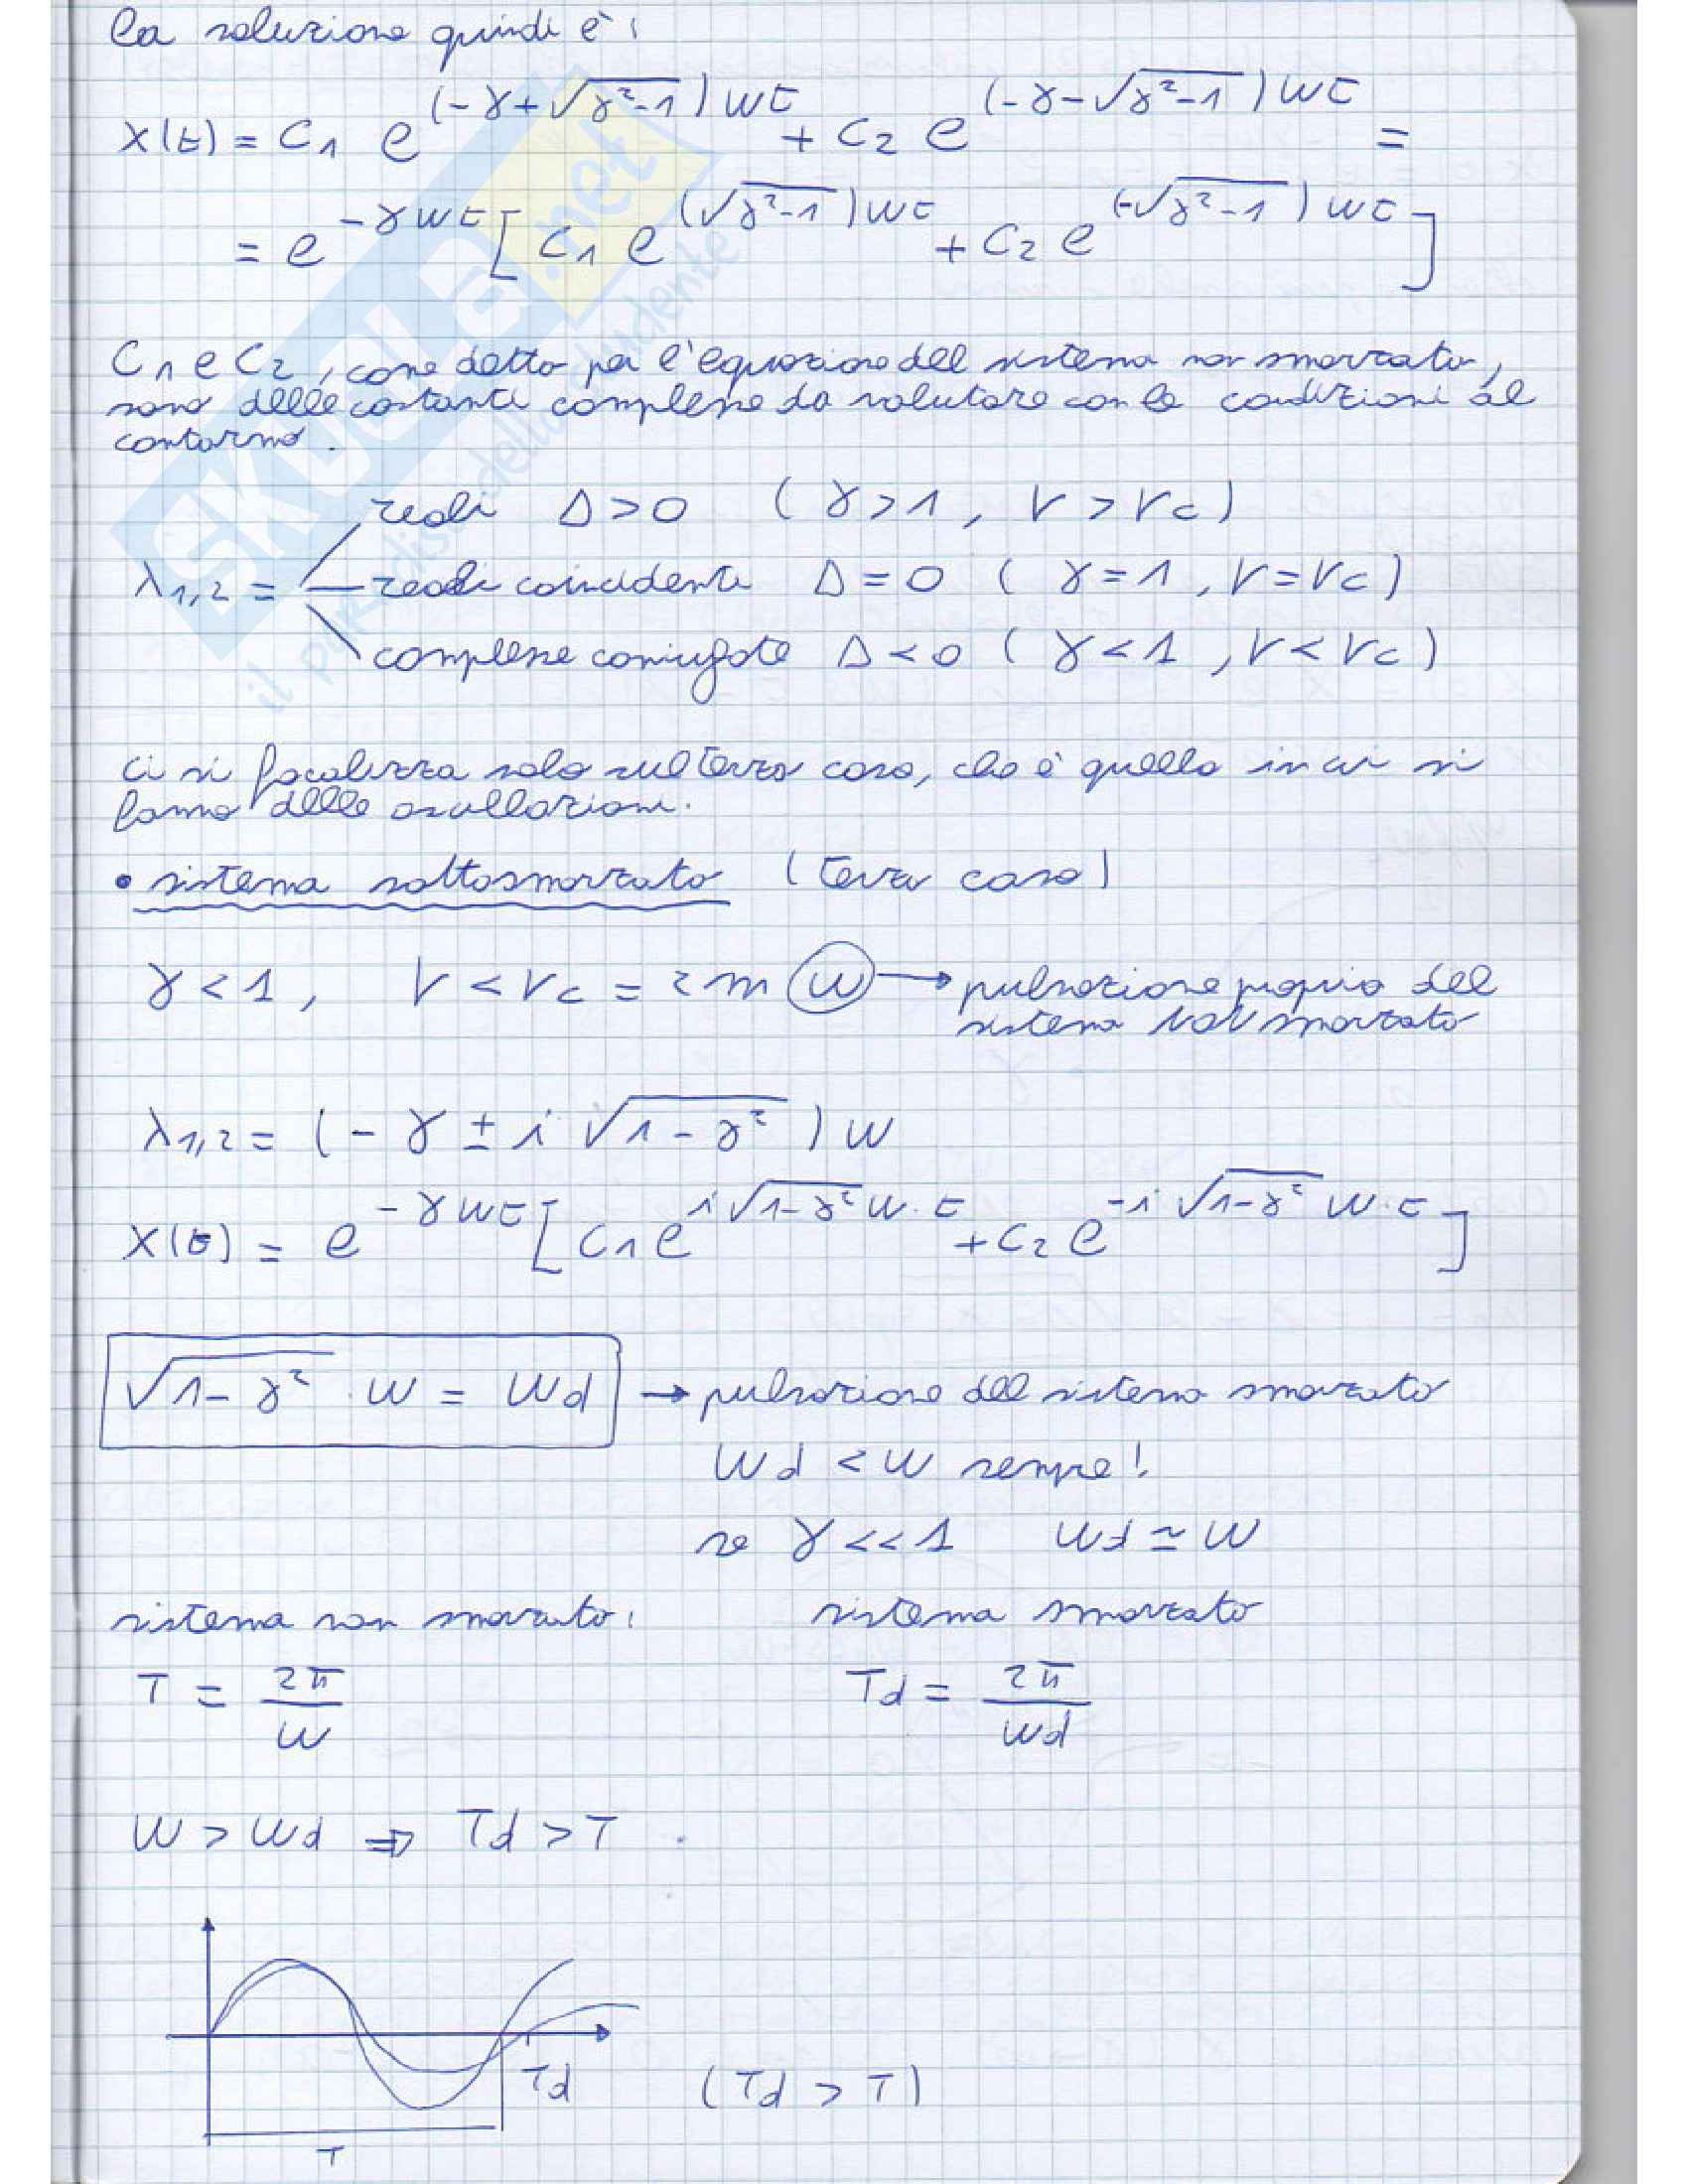 la soluzione quindi è:
x(t) = C₁ e^(-γ+√(γ²-1))wt + C₂ e^(-γ-√(γ²-1))wt =
= e^-γwt [ C₁ e^(√(γ²-1))wt + C₂ e^(-√(γ²-1))wt ]
C₁ e C₂, come detto per l'equazione del sistema non smorzato,
sono delle costanti complesse da valutare con le condizioni al
contorno.
reali Δ>0 ( γ>1, r>rc)
λ₁,₂ = reali coincidenti Δ=0 ( γ=1, r=rc)
complesse coniugate Δ<0 ( γ<1, r<rc)
Ci si focalizza solo sul terzo caso, che è quello in cui si
hanno delle oscillazioni.
• sistema sottosmorzato (terzo caso)
γ<1, r<rc = 2m w → pulsazione propria del
sistema NON smorzato
λ₁,₂ = (-γ ± i √(1-γ²) ) w
x(t) = e^-γwt [ C₁ e^i√(1-γ²)w·t + C₂ e^-i√(1-γ²)w·t ]
√(1-γ²) · w = wd → pulsazione del sistema smorzato
wd < w sempre!
se γ<<1 wd ≃ w
sistema non smorzato: sistema smorzato
T = 2π/w Td = 2π/wd
w > wd ⇒ Td > T
Td (Td > T)
T
SKUOLA.net
il paradiso dello studente